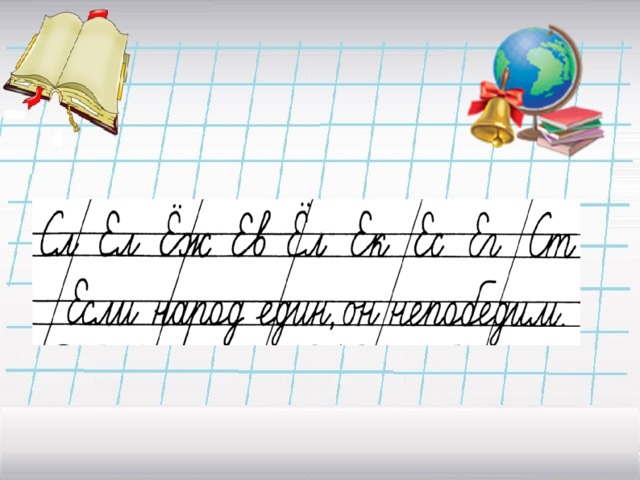 Ел Ел Ёж Ев Ёл Ек Ес Ег Ет
Если народ един, он непобедим.